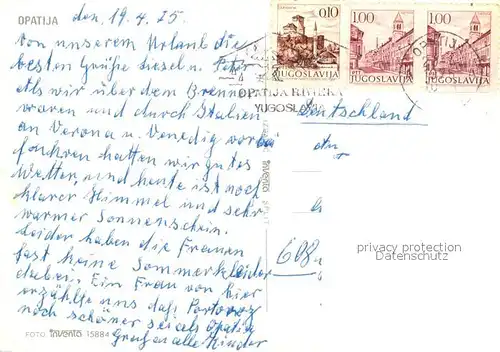 OPATIJA den 19.4.75.
Von unserem Urlaub die
besten Grüße diesel u. Peter
Als wir über dem Brenner
waren und durch Italien
an Verona u. Venedig vorbei
fuhren hatten wir gutes
Wetter, und heute ist noch
klarer Himmel und sehr
warmer Sonnenschein.
Leider haben die Frauen
fast keine Sommerkleider
dabei. Ein Frau von hier
erzählte uns daß Portoroz
noch schöner sei als Opatia
Grüßen alle Kinder
FOTO 15884
0.10
JUGOSLAVIJA
1.00
JUGOSLAVIJA
1.00
JUGOSLAVIJA
OPATIJA
OPATIJA RIVIJERA
YUGOSLAV
Deutschland
An
608
privacy protection
Datenschutz